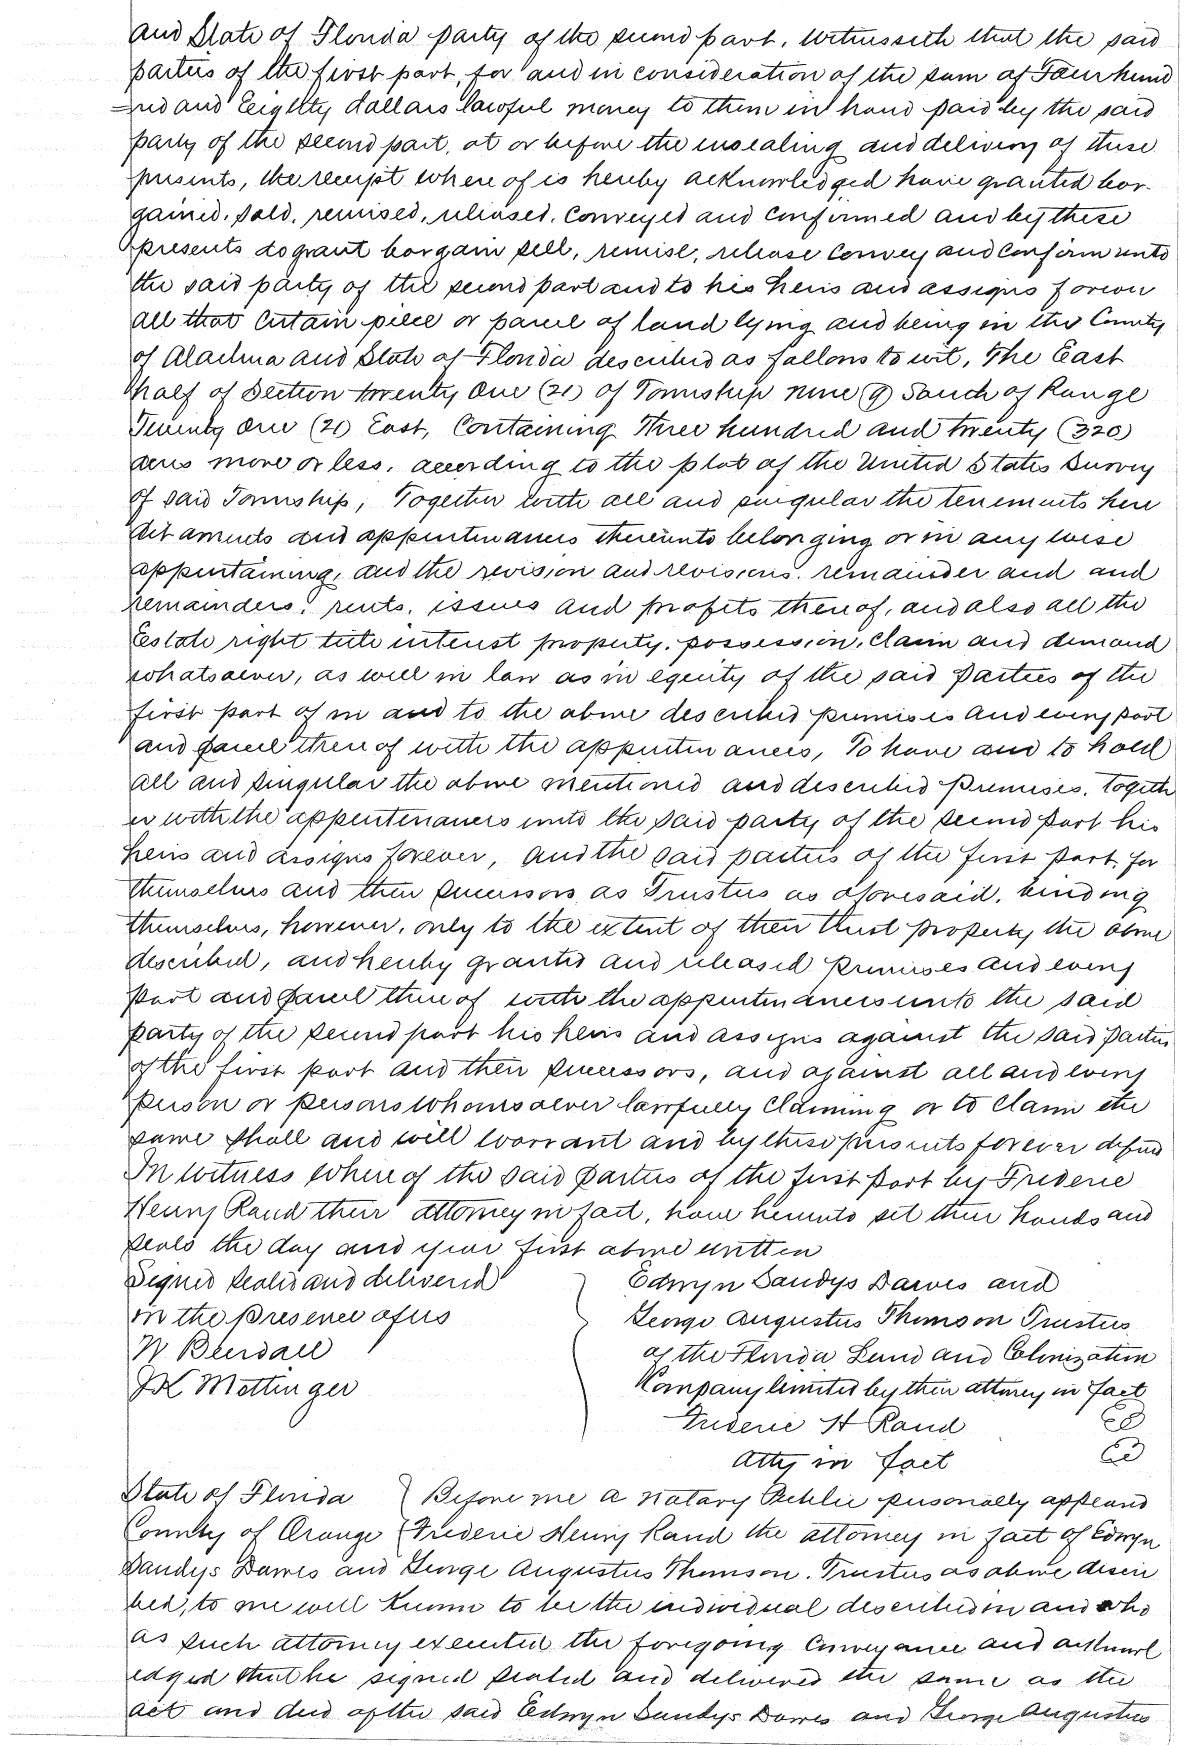 and State of Florida party of the second part, Witnesseth that the said
parties of the first part, for and in consideration of the sum of Four hund
=red and Eighty dollars lawful money to them in hand paid by the said
party of the second part, at or before the ensealing and delivery of these
presents, the receipt where of is hereby acknowledged have granted bar-
gained, sold, remised, released, conveyed and confirmed and by these
presents do grant bargain sell, remise, release convey and confirm unto
the said party of the second part and to his heirs and assigns forever
all that certain piece or parcel of land lying and being in the County
of Alachua and State of Florida described as follows to wit, The East
half of Section twenty One (21) of Township nine (9) South of Range
Twenty One (21) East, Containing Three hundred and twenty (320)
acres more or less, according to the plat of the United States Survey
of said Township, Together with all and singular the tenements here
dit aments and appurtenances thereunto belonging or in any wise
appertaining, and the revision and revisions, remainder and and
remainders, rents, issues and profits there of, and also all the
Estate right title interest property, possession, claim and demand
whatsoever, as well in law as in equity of the said parties of the
first part of in and to the above described premises and every part
and parcel there of with the appurtenances, To have and to hold
all and singular the above mentioned and described premises, togeth
er with the appurtenances unto the said party of the second part his
heirs and assigns forever, and the said parties of the first part, for
themselves and their successors as Trustees as aforesaid, binding
themselves, however, only to the extent of their trust property the above
described, and hereby granted and released premises and every
part and parcel there of with the appurtenances unto the said
party of the second part his heirs and assigns against the said parties
of the first part and their successors, and against all and every
person or persons whomsoever lawfully claiming or to claim the
same shall and will warrant and by these presents forever defend
In witness where of the said parties of the first part by Frederic
Henry Rand their attorney in fact, have hereunto set their hands and
seals the day and year first above written
Signed sealed and delivered
in the presence of us
W Beardall
JK Mottinger
Edwyn Sandys Dawes and
George Augustus Thomson Trustees
of the Florida Land and Colonization
Company limited by their attorney in fact
Frederic H Rand
Atty in fact
State of Florida } Before me a Notary Public personally appeared
County of Orange { Frederic Henry Rand the attorney in fact of Edwyn
Sandys Dawes and George Augustus Thomson, Trustees as above descri
bed, to me well known to be the individual described in and who
as such attorney executed the foregoing Conveyance and acknowl
edged that he signed sealed and delivered the same as the
act and deed of the said Edwyn Sandys Dawes and George Augustus